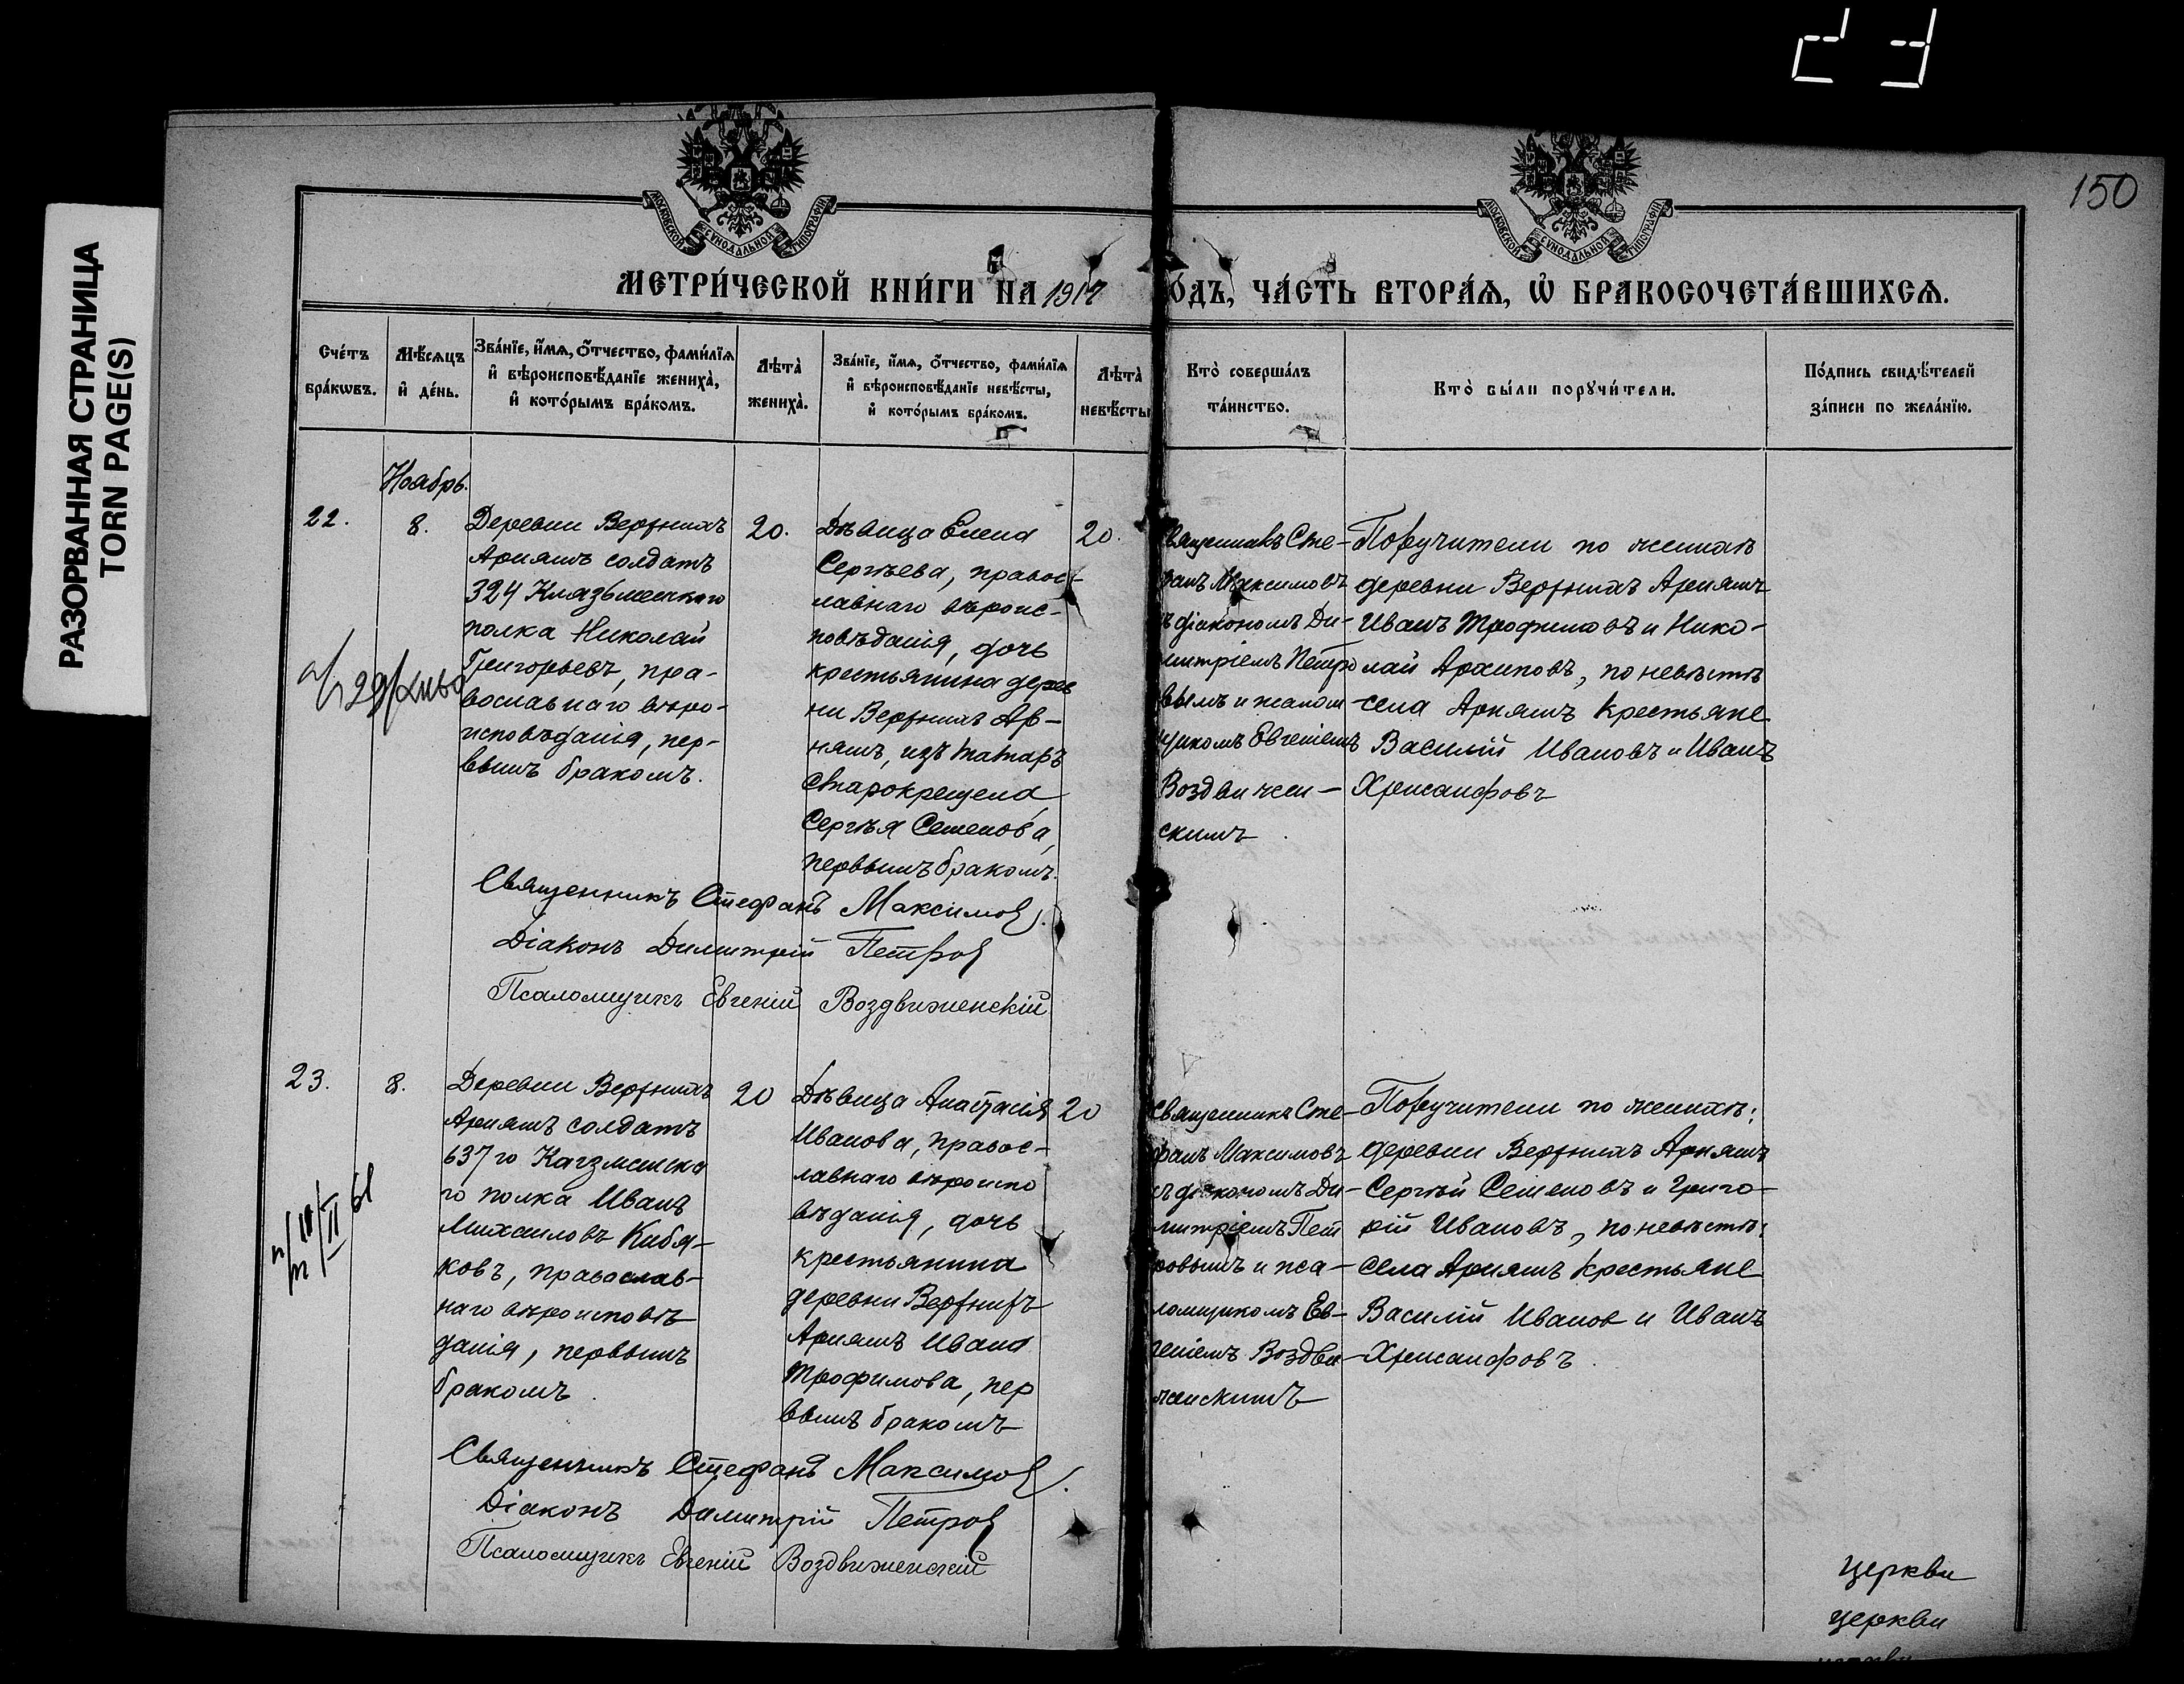 РАЗОРВАННАЯ СТРАНИЦА
TORN PAGE(S)
150
МОСКОВСКОЙ СѴНОДАЛЬНОЙ ТИПОГРАФІИ
МОСКОВСКОЙ СѴНОДАЛЬНОЙ ТИПОГРАФІИ
МЕТРИ́ЧЕСКОЙ КНИ́ГИ НА 1917 ГО́ДЪ, ЧА́СТЬ ВТОРА́Ѧ, Ѽ БРАКОСОЧЕТА́ВШИХСѦ.
Сче́тъ
бра́кѡвъ.
Мѣ́сѧцъ
и҆ де́нь.
Зва́нїе, и҆́мѧ, ѻ҆́тчество, фами́лїѧ
и҆ вѣроисповѣ́данїе жениха̀,
и҆ кото́рымъ бра́комъ.
Лѣта̀
жениха̀.
Зва́нїе, и҆́мѧ, ѻ҆́тчество, фами́лїѧ
и҆ вѣроисповѣ́данїе невѣ́сты,
и҆ кото́рымъ бра́комъ.
Лѣта̀
невѣ́сты
Кто̀ соверша́лъ
та́инство.
Кто̀ бы́ли порꙋчи́тели.
По́дпись свидѣ́телей
за́писи по жела́нїю.
Ноябрь.
22.
8.
Деревни Верхнихъ
Арняшъ солдатъ
324 Клязьменскаго
полка Николай
Григорьевъ, пра-
вославнаго вѣро-
исповѣданія, пер-
вымъ бракомъ.
20.
Дѣвица Елена
Сергѣева, правос-
лавнаго вѣроис-
повѣданія, дочь
крестьянина дерев
ни Верхнихъ Ар-
няшъ, изъ татаръ
старокрещена
Сергѣя Семенова,
первымъ бракомъ.
20.
Священникъ Сте-
фанъ Максимовъ
съ діакономъ Ди-
митріемъ Петро
вымъ и псалом
щикомъ Евгеніемъ
Воздвижен-
скимъ
Поручители по женихѣ
деревни Верхнихъ Арняшъ
Иванъ Трофимовъ и Нико-
лай Архиповъ, по невѣстѣ
села Арняшъ крестьяне
Василій Ивановъ и Иванъ
Хрисанфовъ
Священникъ Стефанъ Максимов.
Діаконъ Димитрій Петров
Псаломщикъ Евгеній Воздвиженскій
23.
8.
Деревни Верхнихъ
Арняшъ солдатъ
637 го Кагзманска
го полка Иванъ
Михаиловъ Кибя-
ковъ, православ-
наго вѣроисповѣ
данія, первымъ
бракомъ.
20
Дѣвица Анастасія
Иванова, правос-
лавнаго вѣроиспо
вѣданія, дочь
крестьянина
деревни Верхнихъ
Арняшъ Ивана
Трофимова, пер
вымъ бракомъ
20
Священникъ Сте-
фанъ Максимовъ
съ діакономъ Ди-
митріемъ Пет
ровымъ и пса-
ломщикомъ Ев-
геніемъ Воздви-
женскимъ
Поручители по женихѣ:
деревни Верхнихъ Арняшъ
Сергѣй Семеновъ и Григо-
рій Ивановъ, по невѣстѣ:
села Арняшъ крестьяне
Василій Иванов и Иванъ
Хрисанфовъ.
Священникъ Стефанъ Максимов.
Діаконъ Димитрій Петров
Псаломщикъ Евгеній Воздвиженскій
церкви
церкви